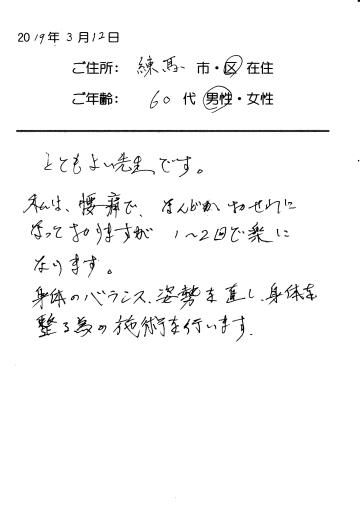 2019年3月12日
ご住所: 練馬 市・区 在住
ご年齢: 60 代 男性・女性
とてもよい先生です。
私は、腰痛で、なんどか お世話に
なっておりますが 1〜2回で楽に
なります。
身体のバランス、姿勢を直し、身体を
整える為の施術を行います。